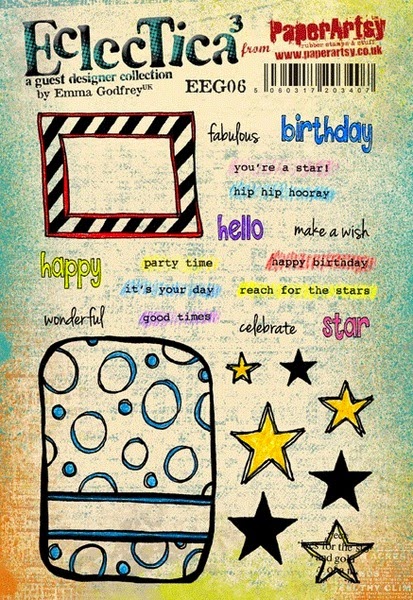 EclecTica³
from
PaperArtsy
rubber stamps & stuff
www.paperartsy.co.uk
a guest designer collection
by Emma Godfrey UK
EEG06
5 060317 203407
fabulous
birthday
you're a star!
hip hip hooray
hello
make a wish
happy
party time
happy birthday
it's your day
reach for the stars
wonderful
good times
celebrate
star
for the
and gold